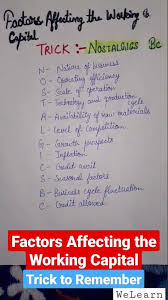 Factors Affecting the Working is
Capital
TRICK :- NOSTALGIGS Bc
N- Nature of business
O- Operating efficiency
S- Scale of operation
T- Technology and production cycle
A- Availability of raw materials
L- Level of Competition
G- Growth prospects
I- Inflation
C- Credit avail
S- Seasonal factors
B- Business cycle fluctuation
C- Credit allowed
Factors Affecting the
Working Capital
Trick to Remember
WeLearn